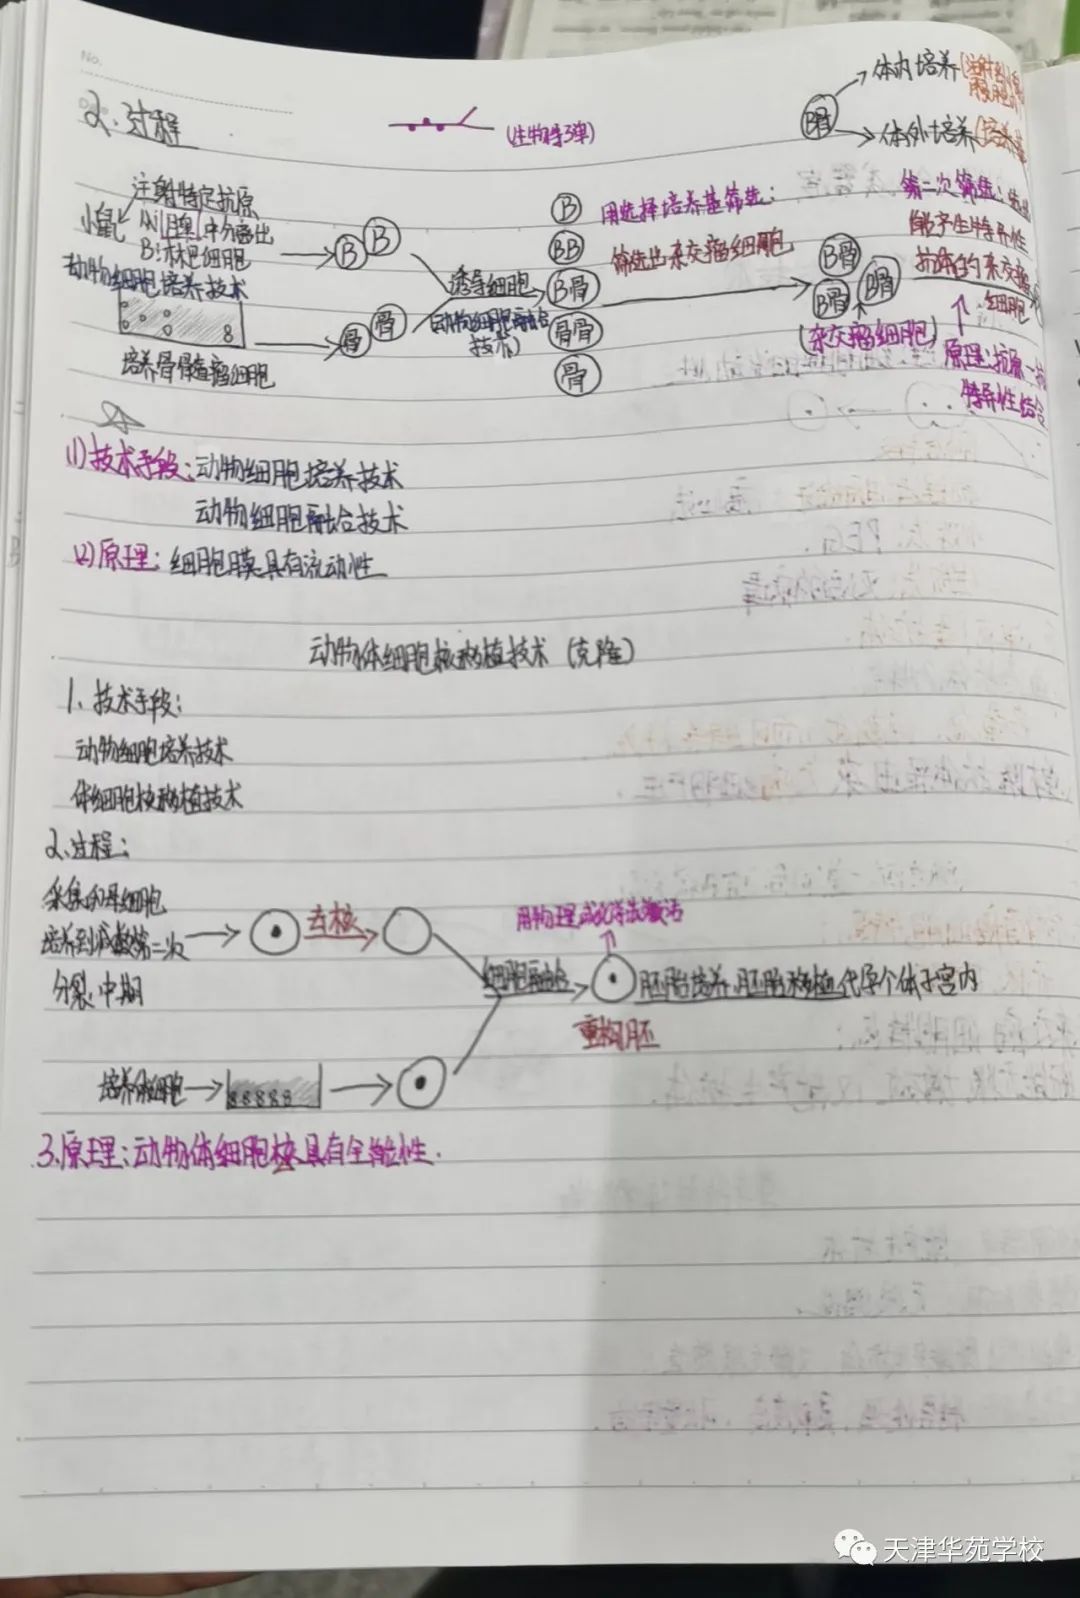 No.
2.过程
(生物导弹)
B骨
体内培养
体外培养
小鼠
注射特定抗原
从脾中分离出
B淋巴细胞
B B
动物细胞培养技术
培养骨髓瘤细胞
骨 骨
诱导细胞
(动物细胞融合
技术)
B
BB
B骨
骨骨
骨
用选择培养基筛选:
筛选出杂交瘤细胞
B骨
B骨 B骨
(杂交瘤细胞)
第二次筛选:
能产生特异性
抗体的杂交瘤
细胞
原理:抗原-抗
特异性结合
(1)技术手段:动物细胞培养技术
动物细胞融合技术
(2)原理:细胞膜具有流动性
动物体细胞核移植技术(克隆)
1.技术手段:
动物细胞培养技术
体细胞核移植技术
2.过程:
采集卵母细胞
培养到减数第二次
分裂中期
去核
细胞融合
用物理或化学法激活
重构胚
胚胎培养,胚胎移植,代孕个体子宫内
培养体细胞
3.原理:动物体细胞核具有全能性.
天津华苑学校